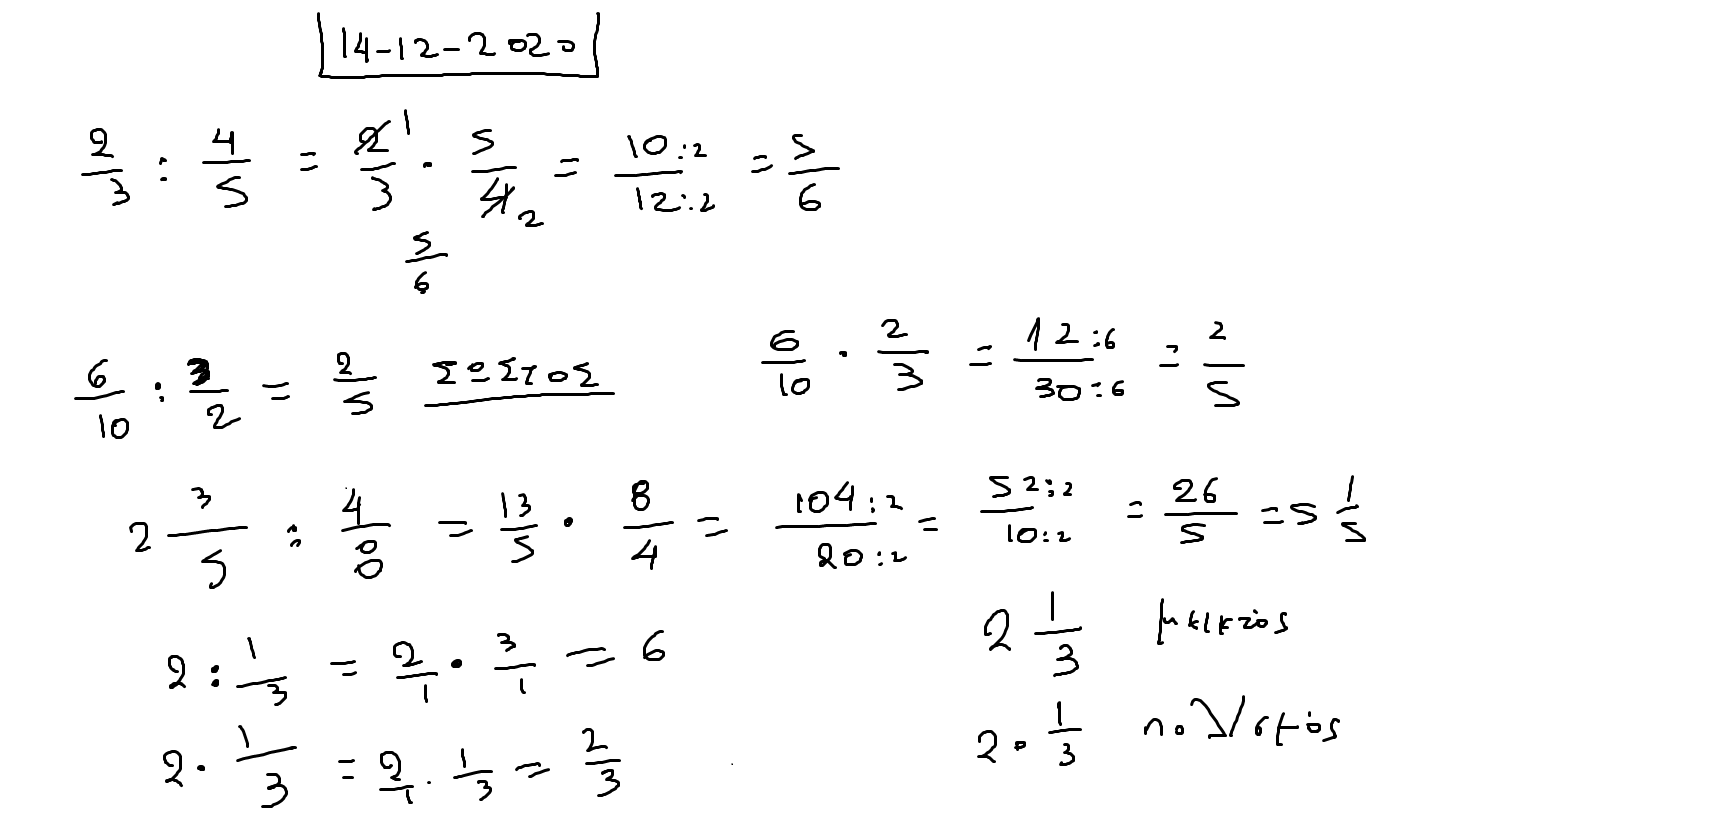 14-12-2020
2/3 : 4/5 = 2/3 1 · 5/4 2 = 10:2/12:2 = 5/6
5/6
6/10 : 3/2 = 2/5 ΣΩΣΤΟΣ 6/10 · 2/3 = 12:6/30:6 = 2/5
2 3/5 : 4/8 = 13/5 · 8/4 = 104:2/20:2 = 52:2/10:2 = 26/5 = 5 1/5
2 : 1/3 = 2/1 · 3/1 = 6 2 1/3 μεικτός
2 · 1/3 = 2/1 · 1/3 = 2/3 2 · 1/3